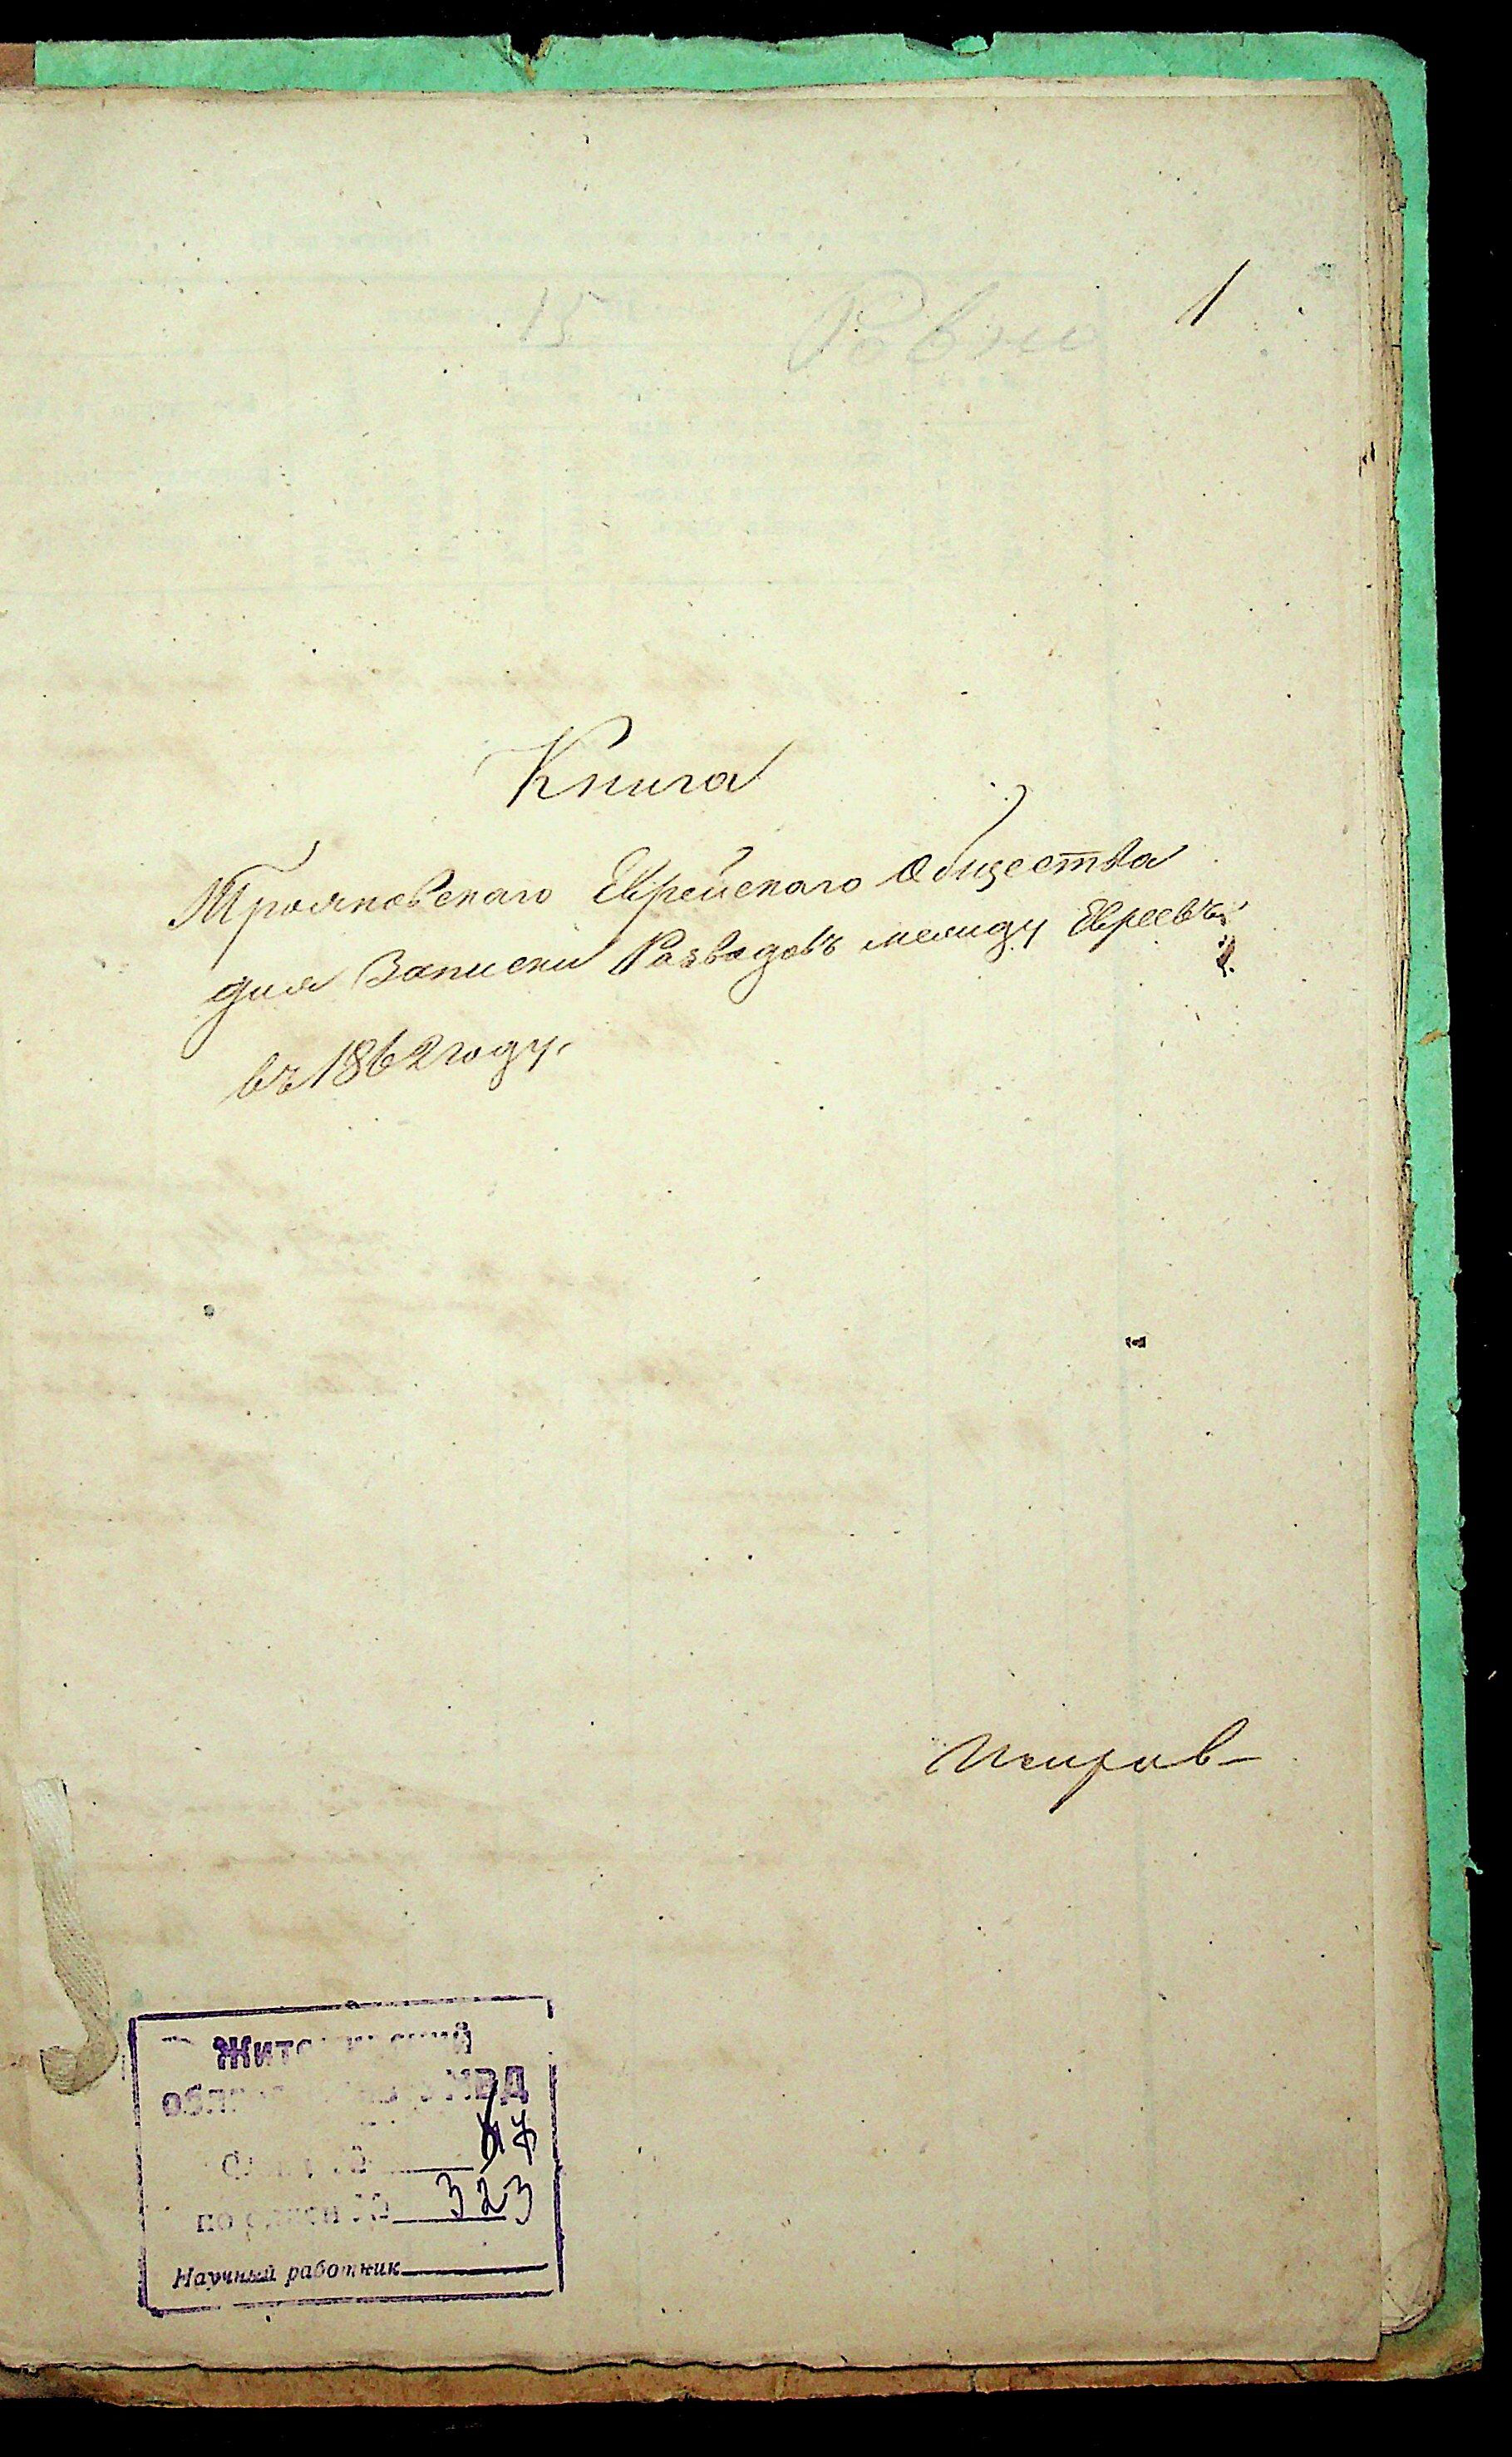 15 Ровно 1
Книга
Трояновскаго Еврейскаго Общества
для Записки Разводовъ между Евреевъ
въ 1862 году.
Житомирский
МВД
323
Научный работник